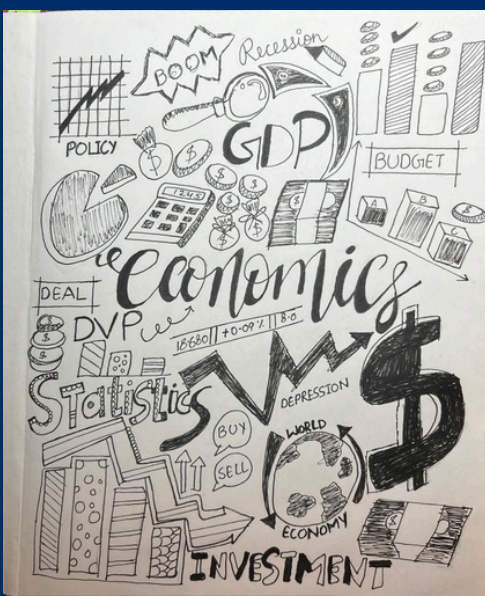 BOOM
Recession
POLICY
GDP
BUDGET
12345
A
B
C
"economics
DEAL
DVP
18680 || +0.09% || 8.0
Statistics
DEPRESSION
BUY
SELL
WORLD
ECONOMY
$
INVESTMENT